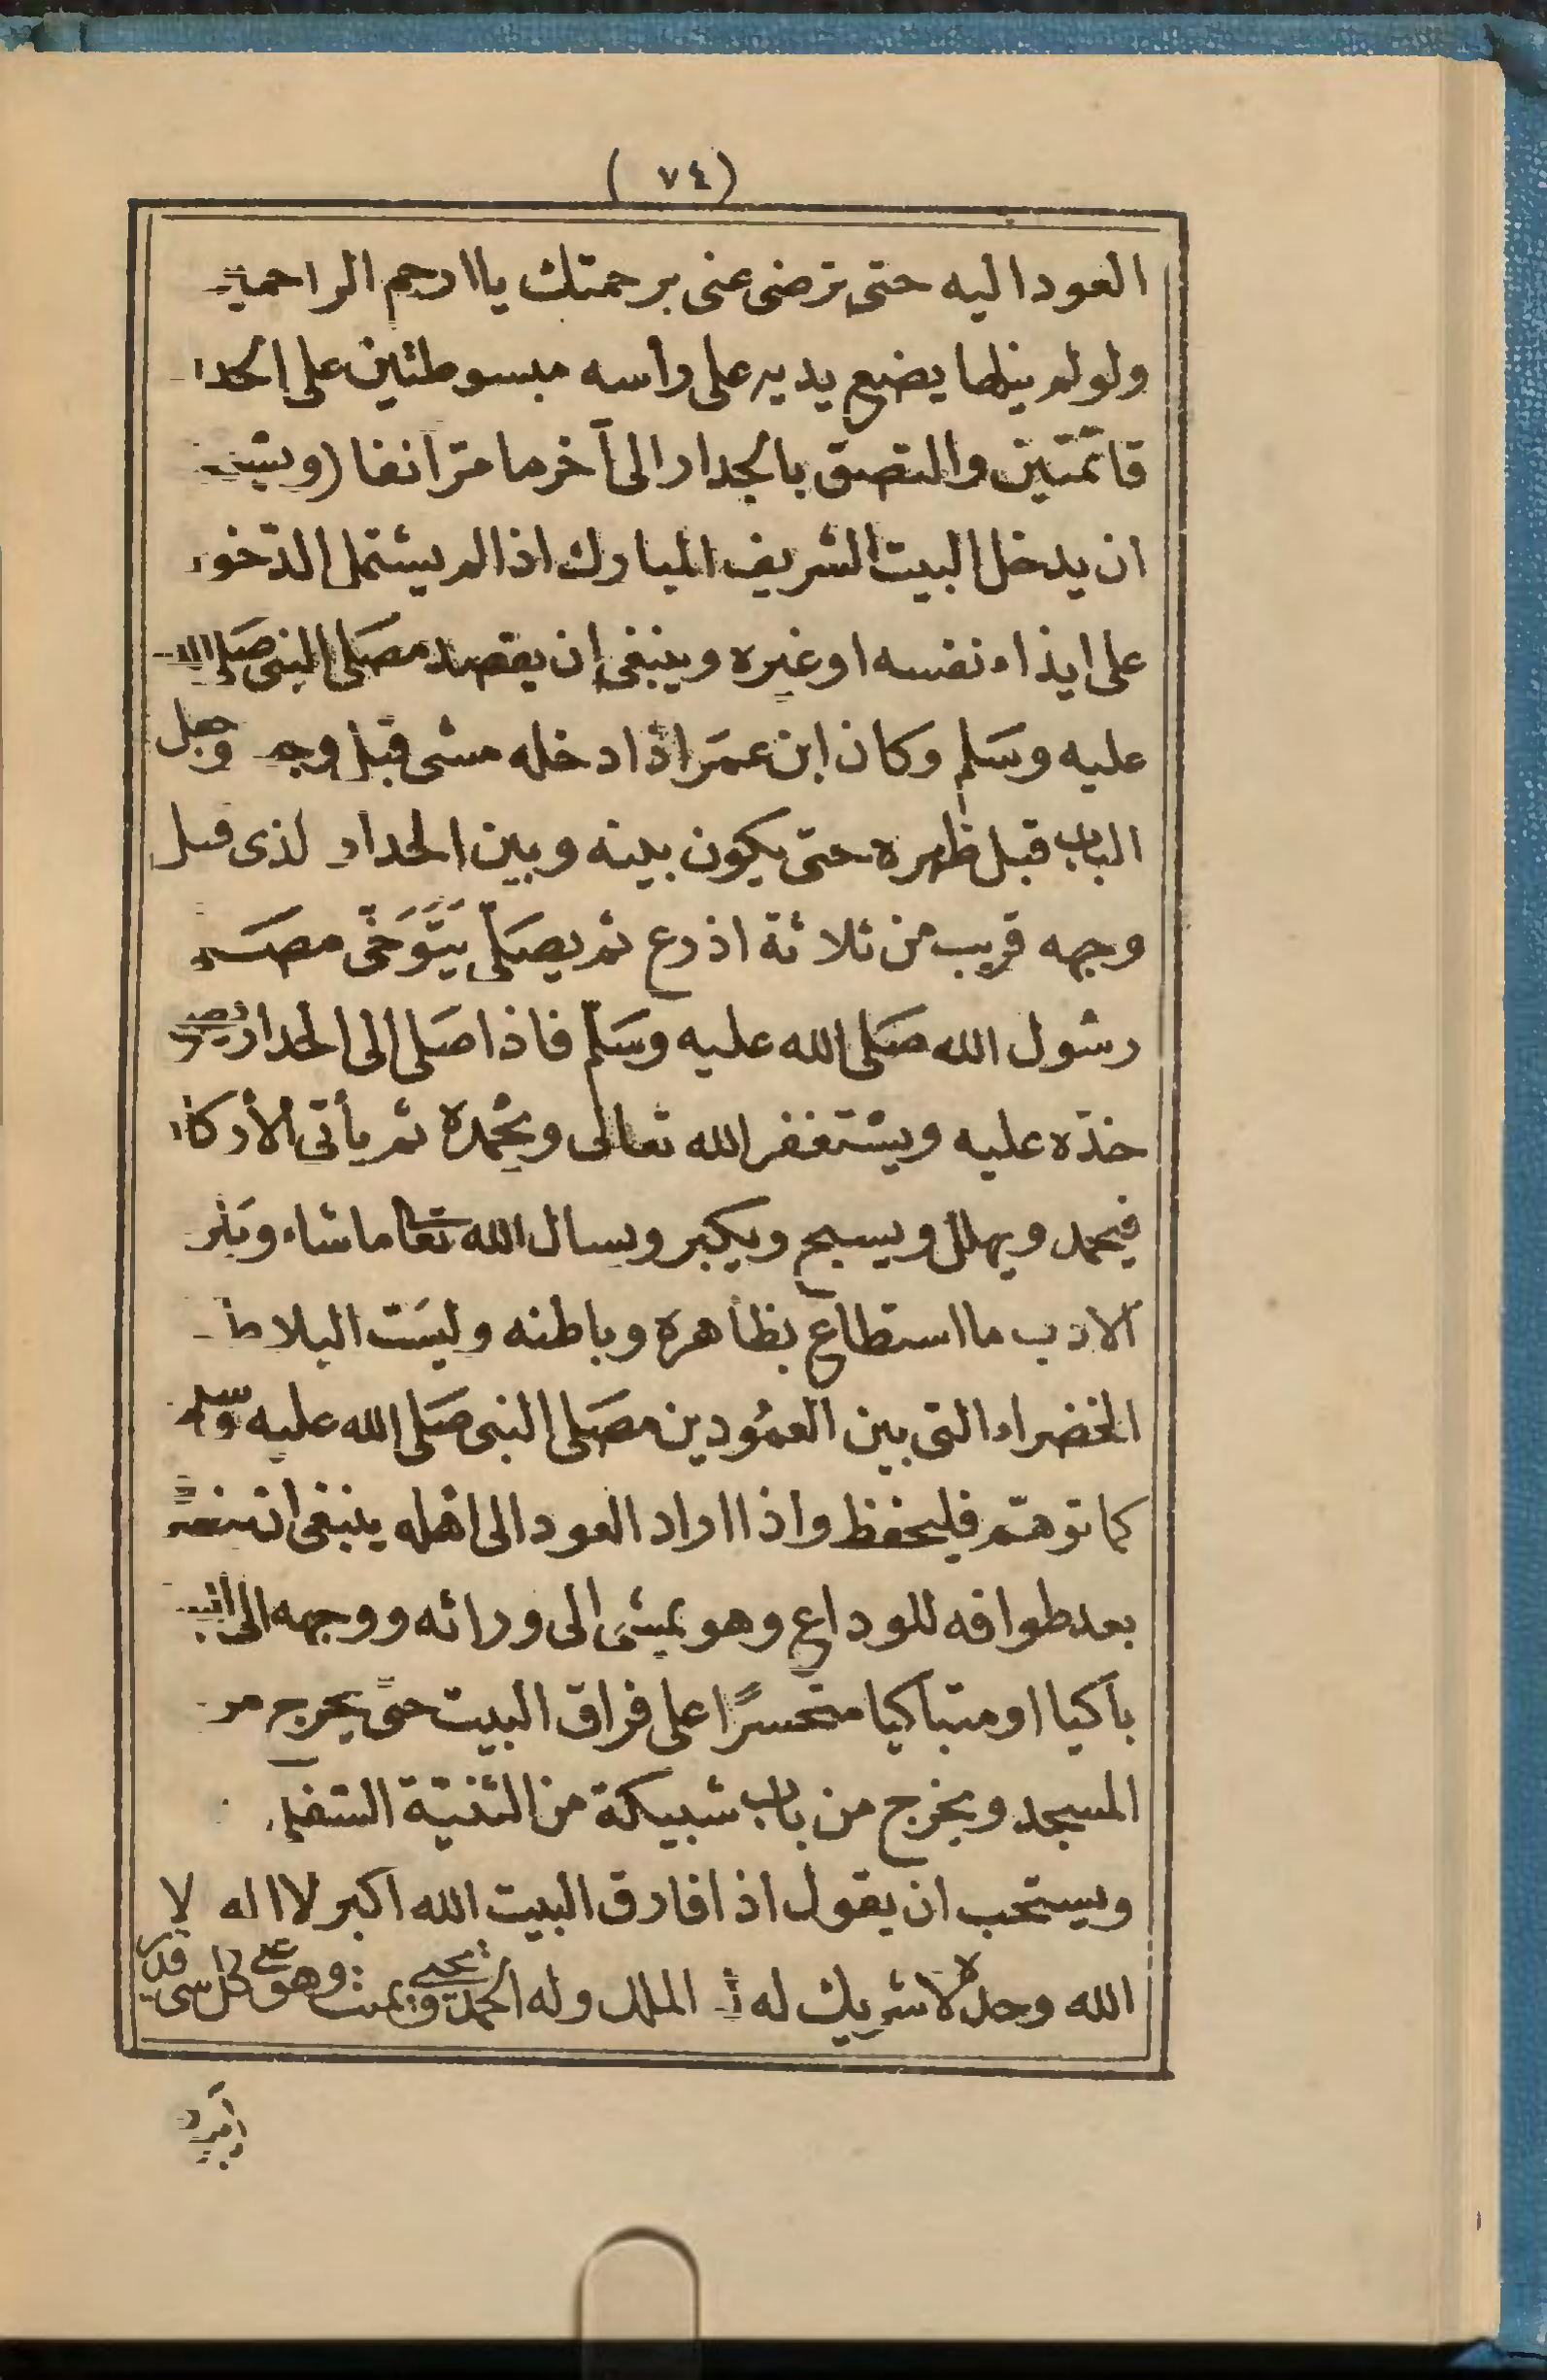 (٧٤)
العود اليه حتى ترضى عنى برحمتك يا ارحم الراحمين
ولو لم ينلها يضع يديه على رأسه مبسوطتين على الجدار
قائمتين والتصق بالجدار الى آخر ما مرّ انفا (ويستحب
ان يدخل البيت الشريف المبارك اذا لم يشتمل الدّخول
على ايذاء نفسه او غيره وينبغى ان يقصد مصَلى النبى صَلى الله
عليه وسَلم وكان ابن عمَر اذا دخله مشى قبل وجهه وجعل
الباب قبل ظهره حتى يكون بينه وبين الجدار الذى قبل
وجهه قريب من ثلاثة اذرع ثم يصَلّى يَتَوَخّى مصَلى
رسول الله صَلى الله عليه وسَلّم فاذا صَلى الى الجدار يضع
خدّه عليه ويستغفر الله تعالى ويحْمده ثم يأتى الأركان
فيحمد ويهلل ويسبح ويكبر ويسال الله تعا ما شاء ويلزم
الادب ما استطاع بظاهره وباطنه وليسَت البلاطة
الخضراء التى بين العمُودين مصَلى النبى صَلى الله عليه وسلم
كما توهّم فليحفظ واذا اراد العود الى اهله ينبغى ان ينصرف
بعد طوافه للوداع وهو يمشى الى ورائه ووجهه الى البيت
باكيا او متباكيا متحسرًا على فراق البيت حتى يخرج من
المسجد ويخرج من باب شبيكة من الثنيّة السّفلى
ويستحب ان يقول اذا فارق البيت الله اكبر لا اله الا
الله وحده لا شريك له له الملك وله الحمد يحيى ويميت وهو على كل شى قدير